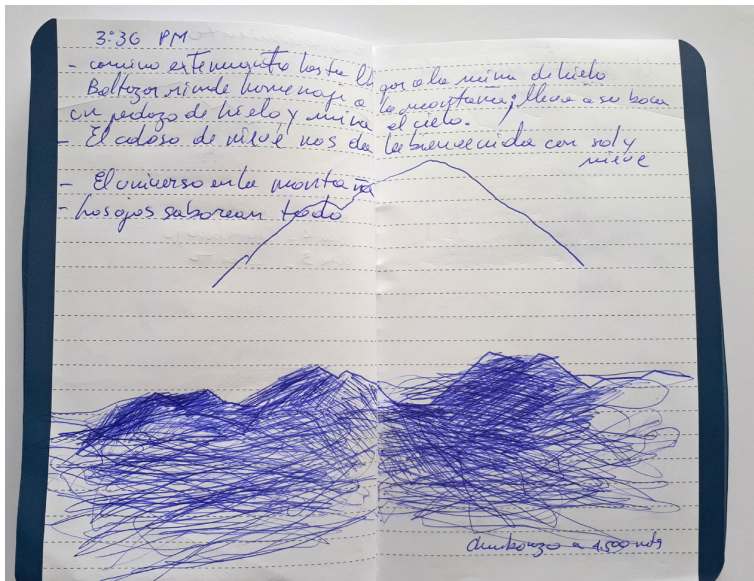 3:36 PM
- camino extenuante hasta llegar a la mina de hielo
Baltazar rinde homenaje a la montaña; lleva a su boca
un pedazo de hielo y mira el cielo.
- El coloso de nieve nos da la bienvenida con sol y
nieve
- El universo en la montaña
- Los ojos saborean todo
Chimborazo a 4.500 mts